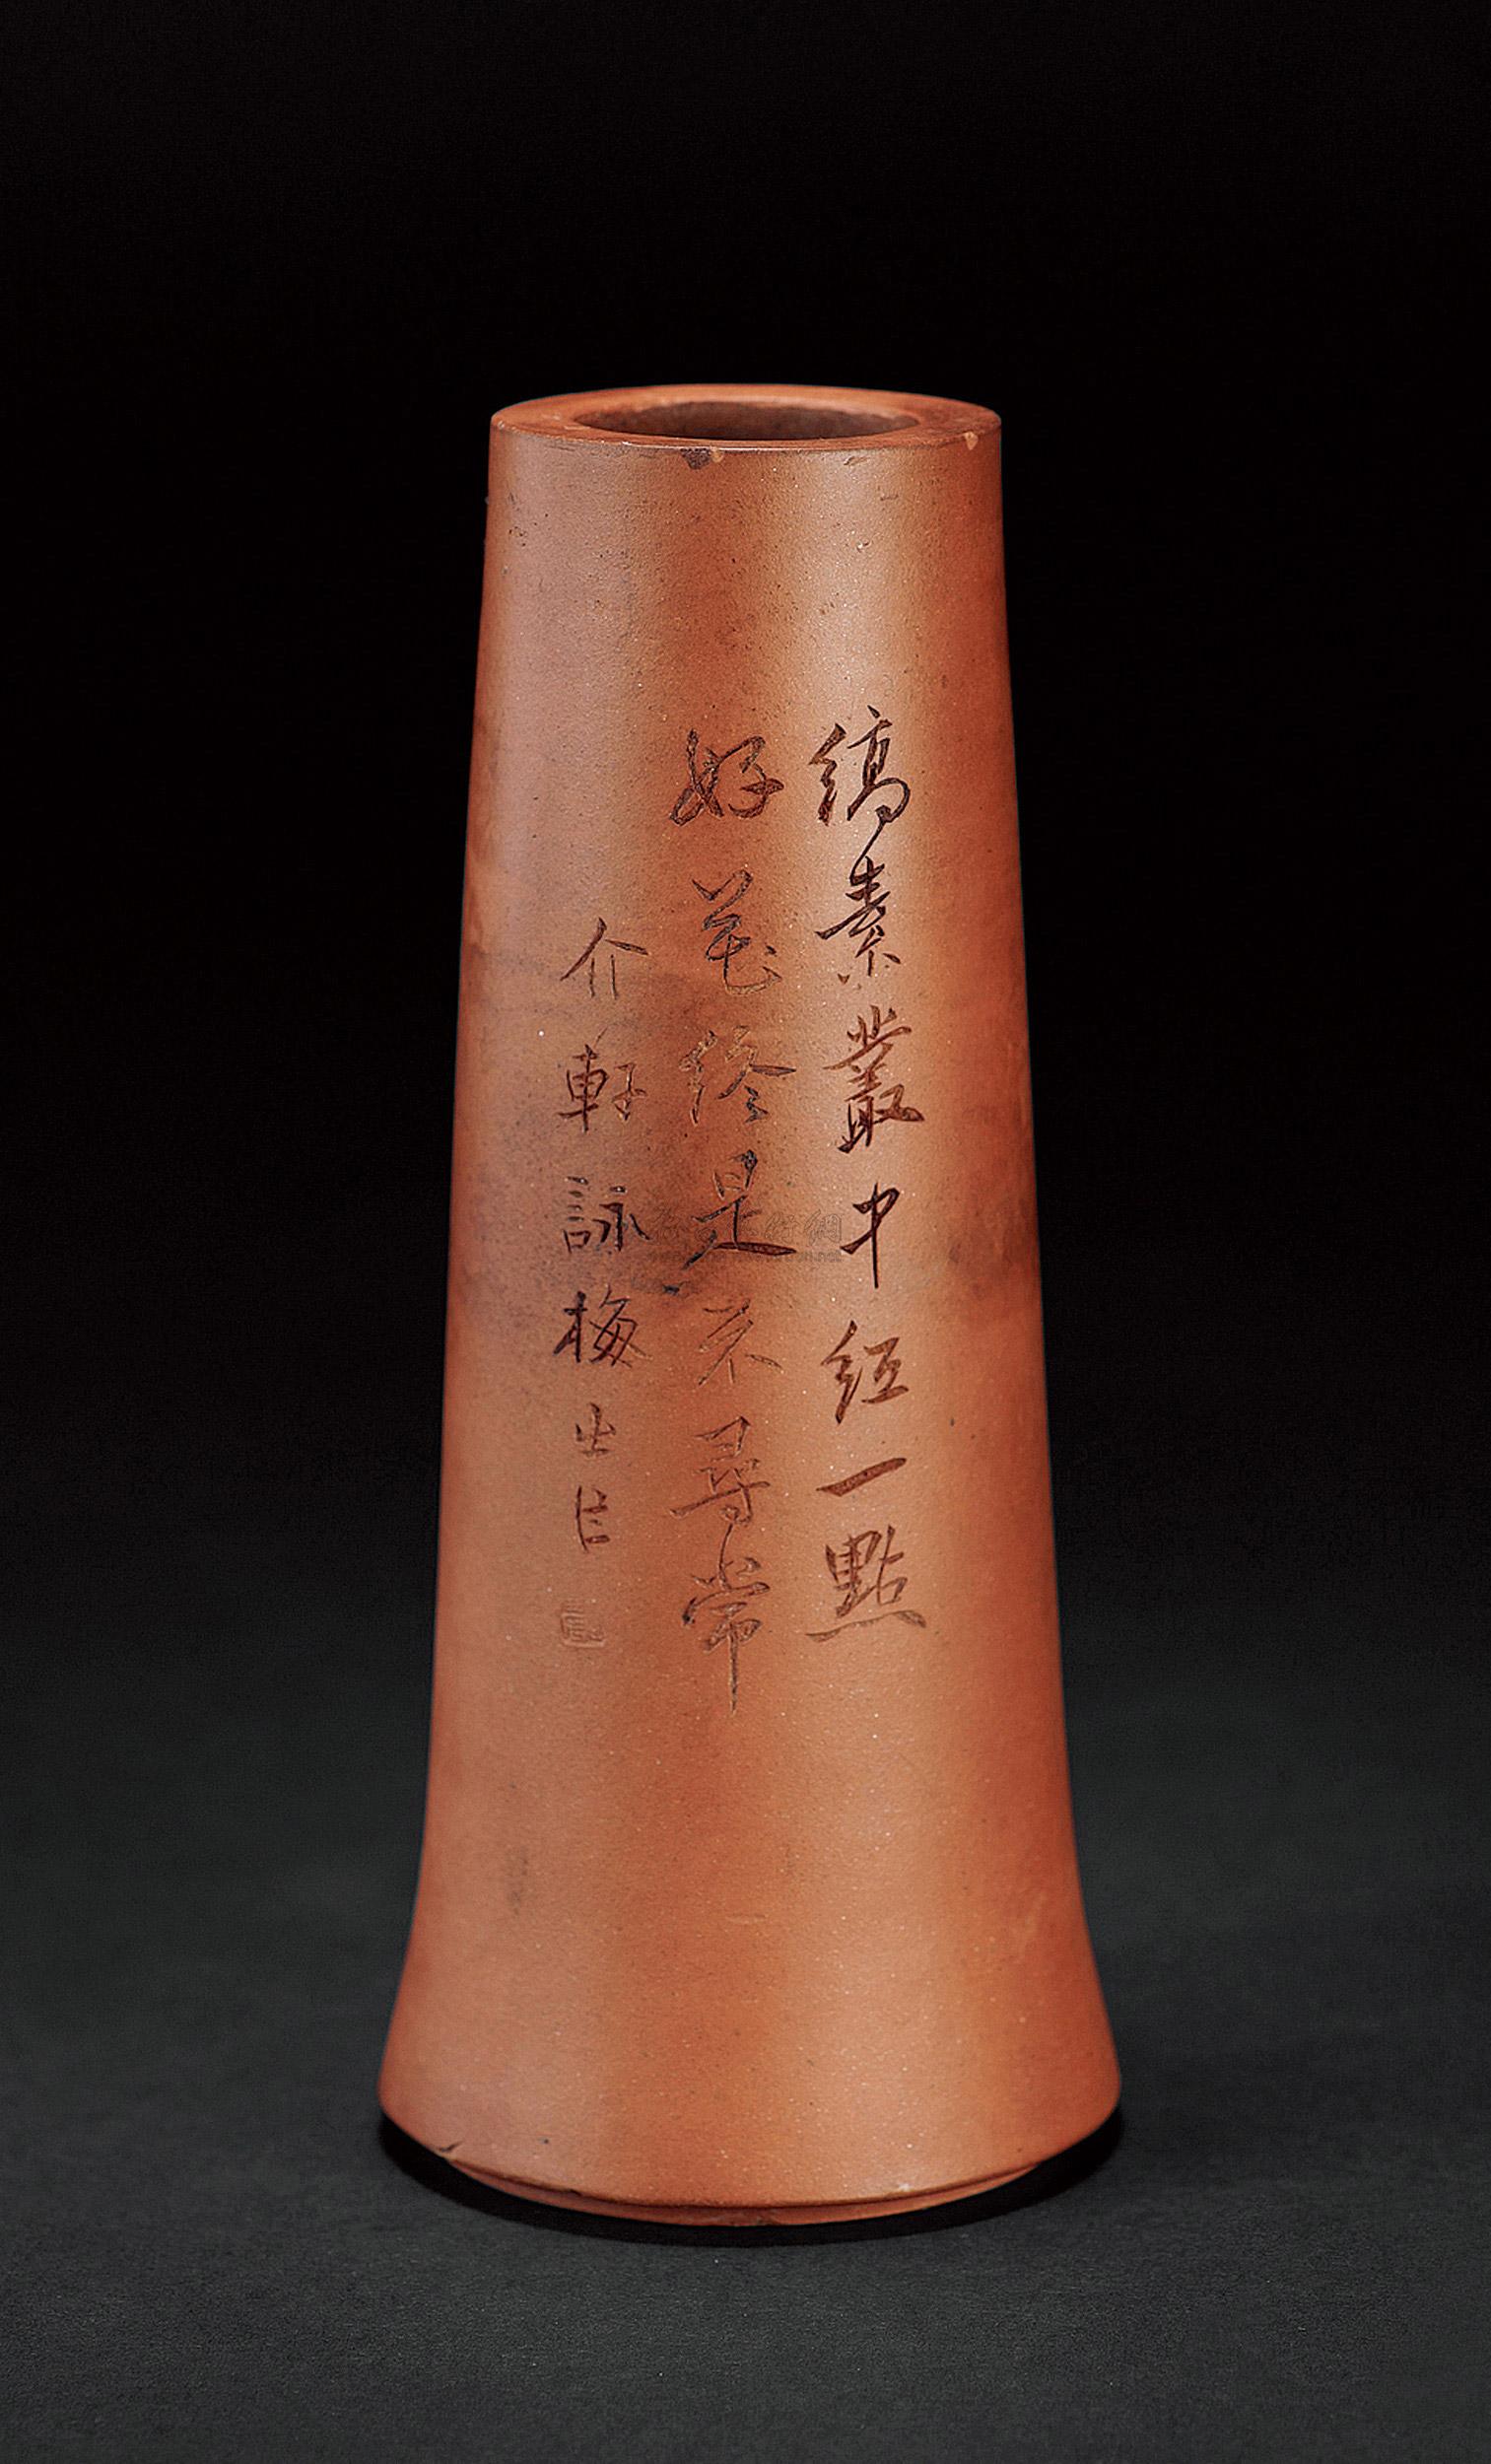 縞素叢中紅一點
好花終是不尋常
介軒詠梅